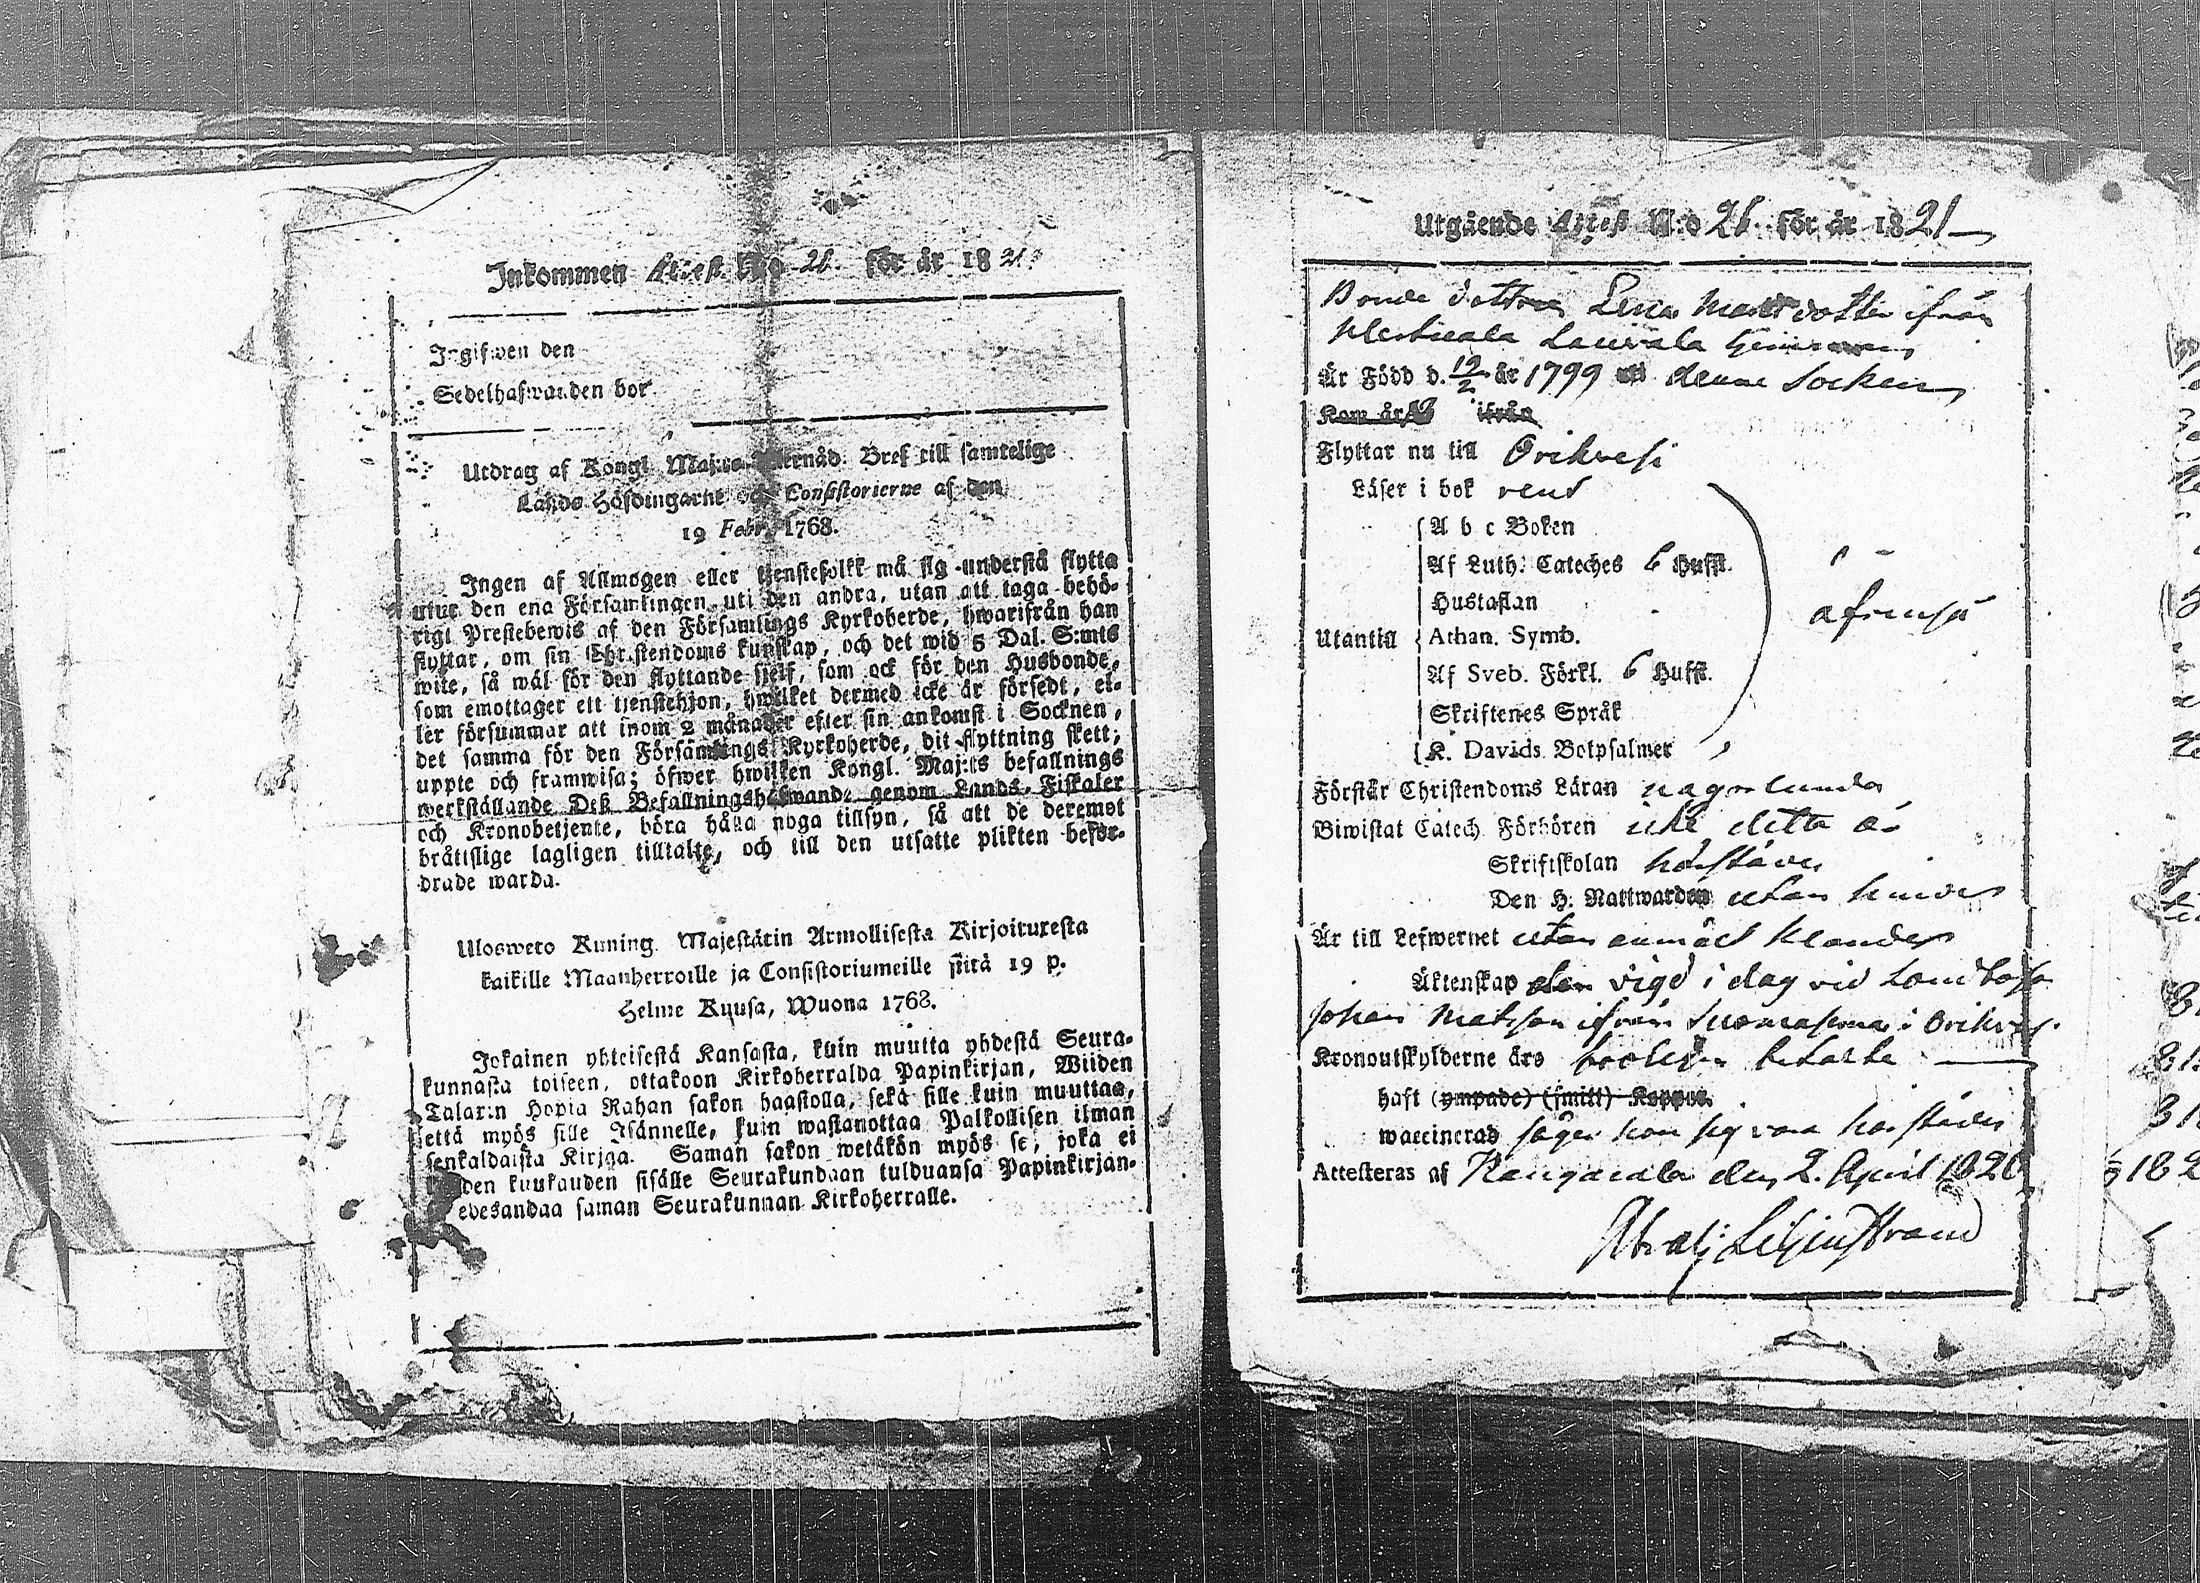 Inkommen Attest N:o 26. för år 1821.
Ingifwen den
Sedelhafwanden bor
Utdrag af Kongl. Maj:ts Bref till samtelige
Lands Höfdingarne och Consistorierne af den
19 Febr. 1768.
Ingen af Allmogen eller tjenstefolkk må sig understå flytta
utur den ena Församlingen uti den andra, utan att taga behö-
rigt Prestebewis af den Församlings Kyrkoherde, hwarifrån han
flyttar, om sin Christendoms kunskap, och det wid 5 Dal. S:mts
wite, så wäl för den flyttande sjelf, som ock för den Husbonde,
som emottager ett tjenstehjon, hwilket dermed icke är försedt, el-
ler försummar att inom 2 månader efter sin ankomst i Socknen,
det samma för den Församlings Kyrkoherde, dit flyttning skett,
uppte och framwisa; öfwer hwilken Kongl. Maj:ts befallnings
werkställande Deß Befallningshafwande genom Lands-Fiskaler
och Kronobetjente, böra hålla noga tillsyn, så att de deremot
bråttslige lagligen tilltalte, och till den utsatte plikten befor-
drade warda.
Ulosweto Kuning. Majestätin Armollisesta Kirjoituxesta
kaikille Maanherroille ja Consistoriumeille siitä 19 p.
Helme Kuusa, Wuona 1768.
Jokainen yhteisestä Kansasta, kuin muutta yhdestä Seura-
kunnasta toiseen, ottakoon Kirkoherralda Papinkirjan, Wiiden
Talarin Hopia Rahan sakon haastolla, sekä sille kuin muuttaa,
että myös sille Isännelle, kuin wastanottaa Palkollisen ilman
senkaldaista Kirjaa. Saman sakon wetäkön myös se, joka ei
den kuukauden sisälle Seurakundaan tulduansa Papinkirjan-
edesandaa saman Seurakunnan Kirkoherralle.
Utgående Attest N:o 26 för år 1821
Bonde dottren Lena Matsdotter ifrån
Laurila
Är Född d. 19/2 år 1799 i denne Socken
Kom år 18 ifrån
Flyttar nu till Orihvesi
Läser i bok rent
A b c Boken
Af Luth. Cateches 6 Huffst.
Hustaflan
Utantill Athan. Symb.
Af Sveb. Förkl. 6 Huffst.
Skriftenes Språk
K. Davids Botpsalmer
Förstår Christendoms Läran någorlunda
Biwistat Catech. Förhören icke detta år
Skriftskolan härstädes
Den H. Nattwarden utan hinder
Är till Lefwernet utan anmält klander
Äktenskap vigd i dag vid Landbonden
Johan Matsson ifrån i Orihvesi
Kronoutskylderne års betalte
haft (ympade) (smitt) Koppor.
waccinerad säger hon sig vara härstädes
Attesteras af Kangasala den 2. April 1821
Abr. Liljenstrand